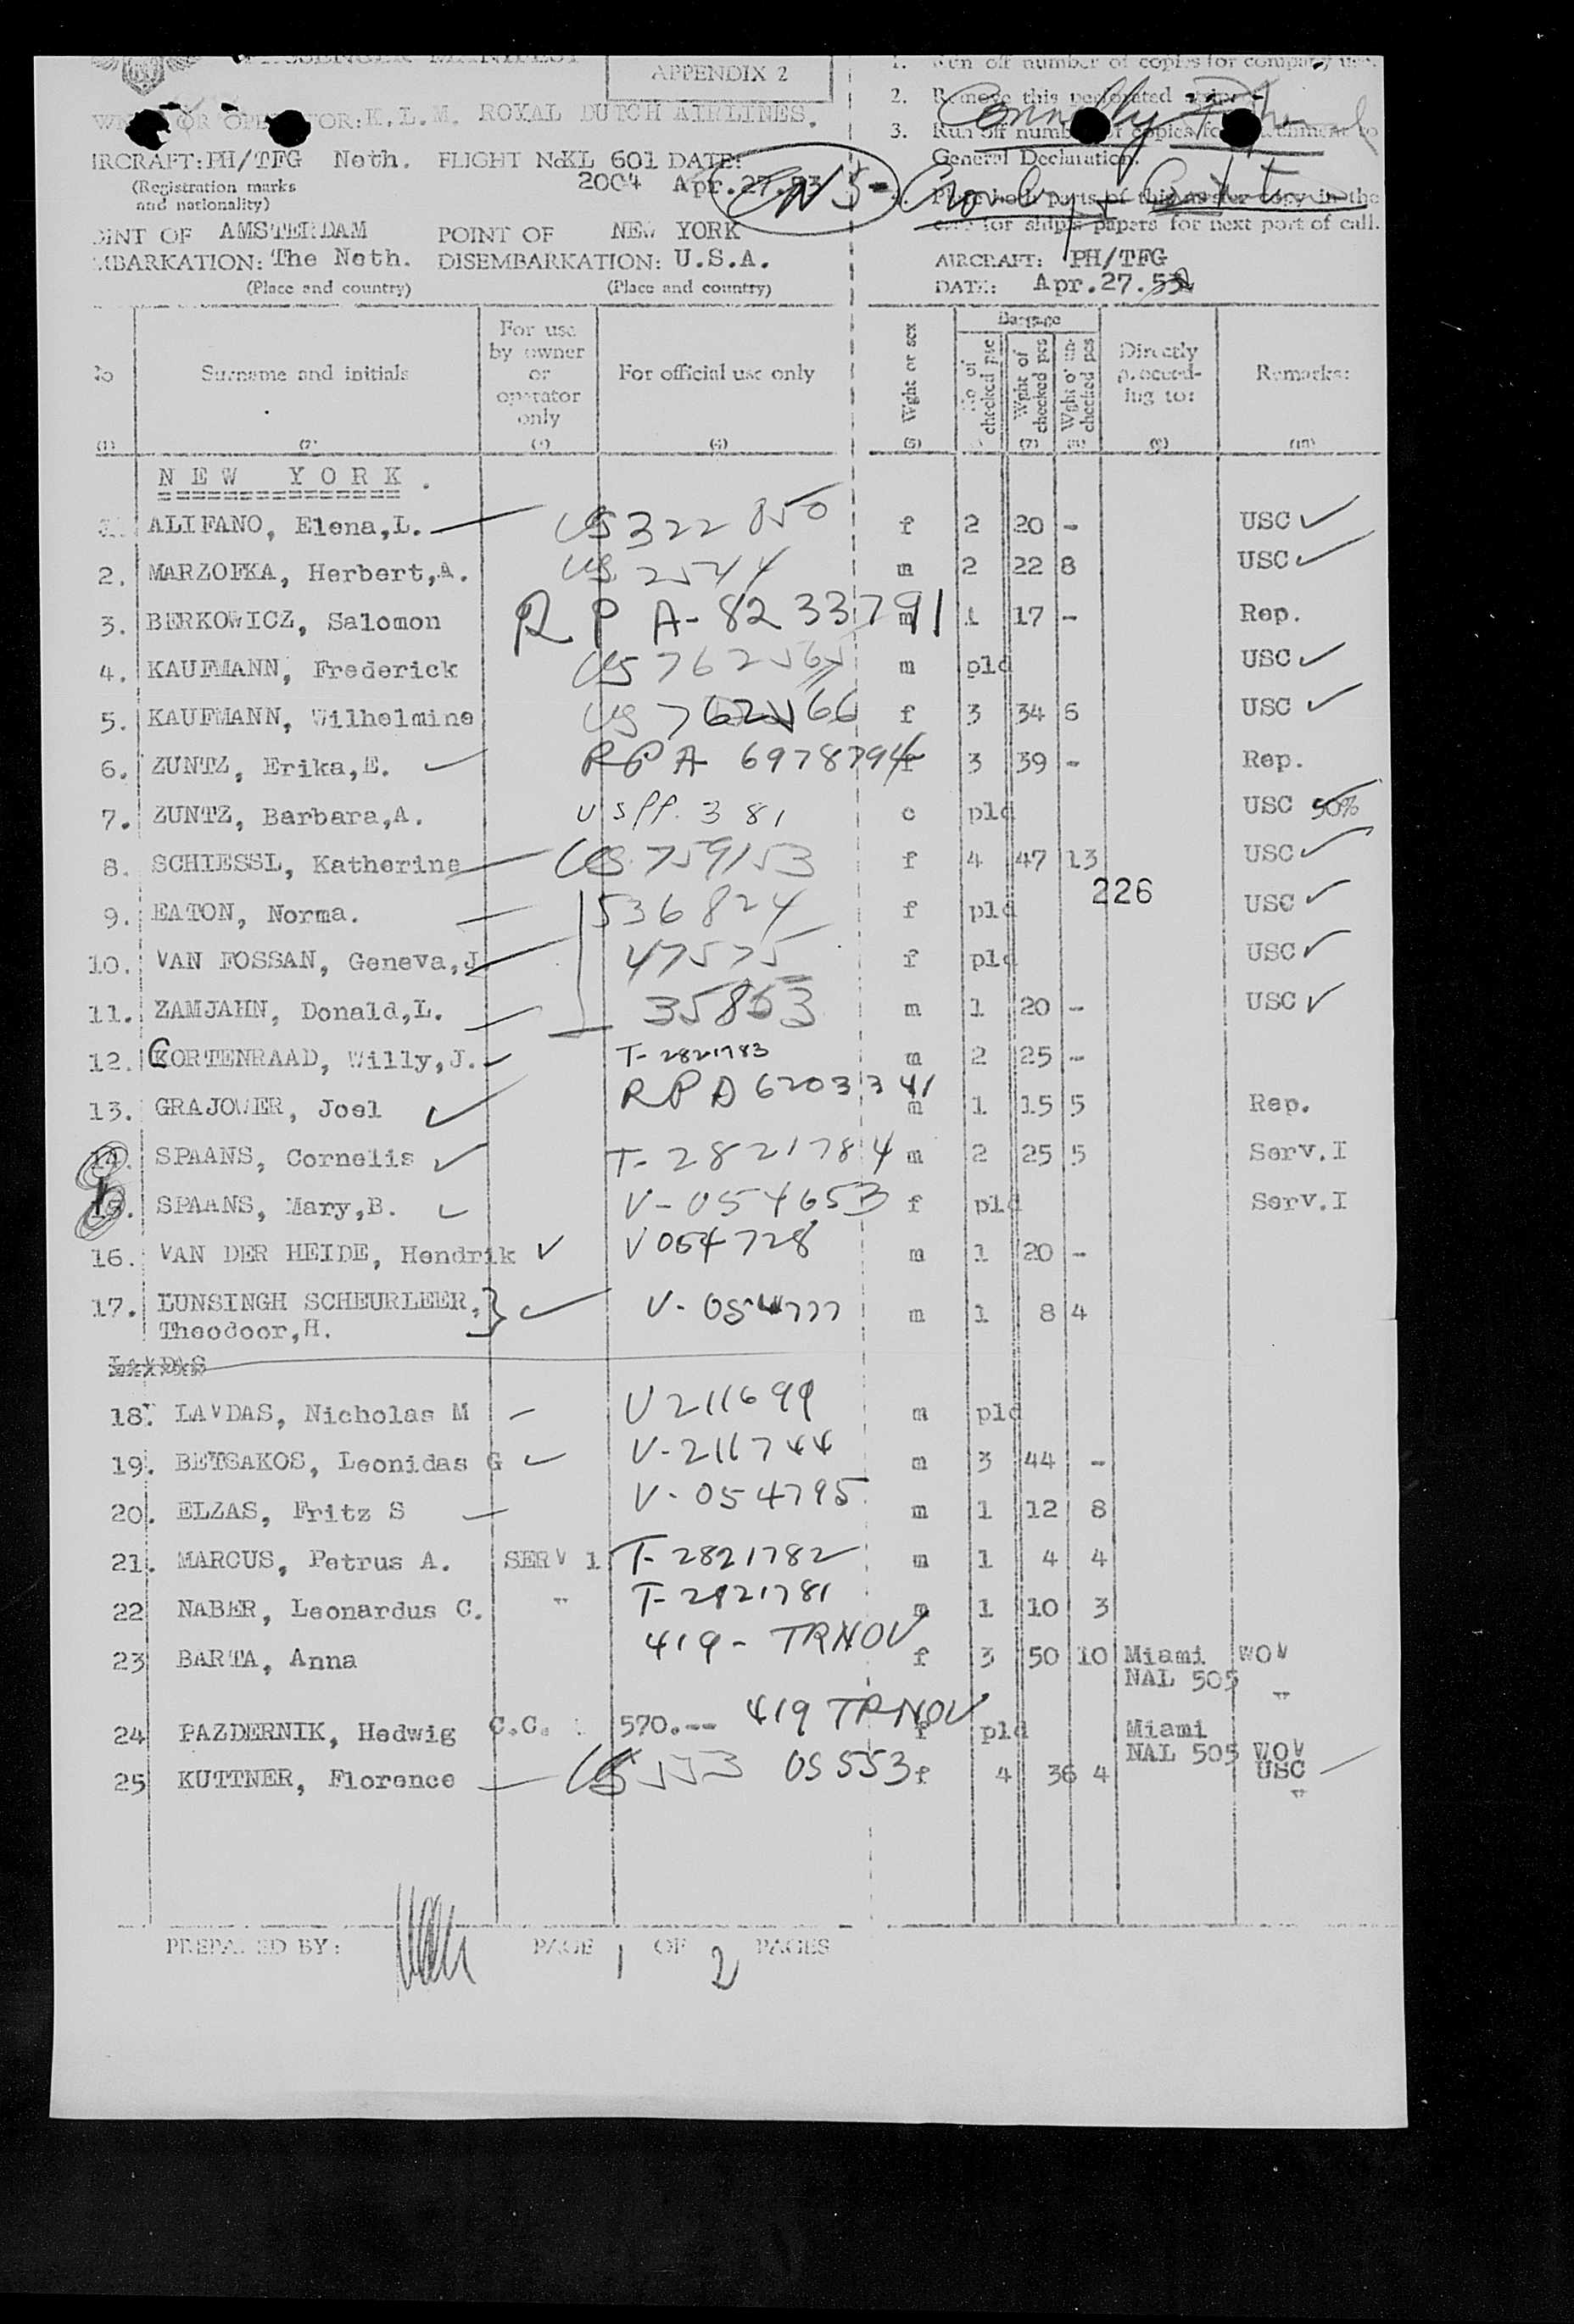 PASSENGER MANIFEST
APPENDIX 2
OR OPERATOR: K.L.M. ROYAL DUTCH AIRLINES.
IRCRAFT: PH/TFG Neth. FLIGHT No KL 601 DATE:
(Registration marks and nationality)
2004 Apr.27.53
OINT OF AMSTERDAM POINT OF NEW YORK
MBARKATION: The Neth. DISEMBARKATION: U.S.A.
(Place and country) (Place and country)
1. Run off number of copies for company use.
2. Remove this perforated
3. Run off number of copies for to
General Declaration.
both parts of this master copy in the
for ship's papers for next port of call.
AIRCRAFT: PH/TFG
DATE: Apr.27.53
No Surname and initials For use by owner or operator only For official use only Wght or sex Baggage No of checked pcs Wght of checked pcs Wght of un-checked pcs Directly proceed-ing to: Remarks:
(1) (2) (3) (4) (5) (7) (8) (9) (10)
NEW YORK.
1. ALIFANO, Elena,L. US 322 850 f 2 20 - USC ✓
2. MARZOFKA, Herbert,A. US 2544 m 2 22 8 USC ✓
3. BERKOWICZ, Salomon R P A-8233791 m 1 17 - Rep.
4. KAUFMANN, Frederick US 762565 m pld USC ✓
5. KAUFMANN, Wilhelmine US 762566 f 3 34 6 USC ✓
6. ZUNTZ, Erika,E. ✓ RP A 6978794 f 3 39 - Rep.
7. ZUNTZ, Barbara,A. US PP. 381 c pld USC 50%
8. SCHIESSL, Katherine US 759153 f 4 47 13 USC ✓
226
9. EATON, Norma. 536824 f pld USC ✓
10. VAN FOSSAN, Geneva,J 47575 f pld USC ✓
11. ZAMJAHN, Donald,L. 35863 m 1 20 - USC ✓
12. CORTENRAAD, Willy,J. T-2821783 m 2 25 -
13. GRAJOWER, Joel ✓ RP A 6203341 m 1 15 5 Rep.
14. SPAANS, Cornelis ✓ T-2821784 m 2 25 5 Serv.I
15. SPAANS, Mary,B. ✓ V-054653 f pld Serv.I
16. VAN DER HEIDE, Hendrik ✓ V054728 m 1 20 -
17. LUNSINGH SCHEURLEER, Theodoor,H. ✓ V-054777 m 1 8 4
18. LAVDAS, Nicholas M V211699 m pld
19. BETSAKOS, Leonidas G ✓ V-211744 m 3 44 -
20. ELZAS, Fritz S V-054795 m 1 12 8
21. MARCUS, Petrus A. SERV 1 T-2821782 m 1 4 4
22 NABER, Leonardus C. " T-2821781 m 1 10 3
23 BARTA, Anna 419-TRNOV f 3 50 10 Miami WOV
NAL 505 "
24 PAZDERNIK, Hedwig C.C. : 570.-- 419 TRNOV f pld Miami
NAL 505 WOV
25 KUTTNER, Florence US 553 05553 f 4 36 4 USC
"
PREPARED BY: PAGE 1 OF 2 PAGES